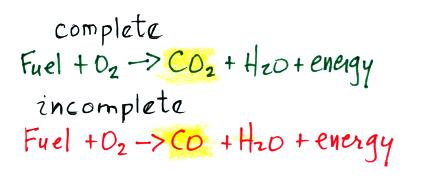 complete
Fuel + O₂ → CO₂ + H₂O + energy
incomplete
Fuel + O₂ → CO + H₂O + energy